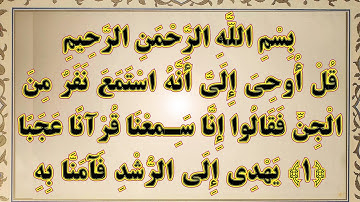 بِسْمِ اللَّهِ الرَّحْمَنِ الرَّحِيمِ
قُلْ أُوحِيَ إِلَيَّ أَنَّهُ اسْتَمَعَ نَفَرٌ مِنَ
الْجِنِّ فَقَالُوا إِنَّا سَـمِعْنَا قُرْآنًا عَجَبًا
﴿١﴾ يَهْدِي إِلَى الرُّشْدِ فَآمَنَّا بِهِ